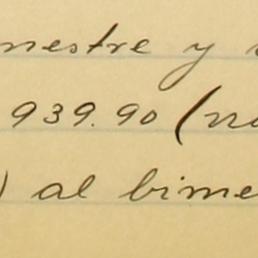 mestre y
939.90 (no
) al bime